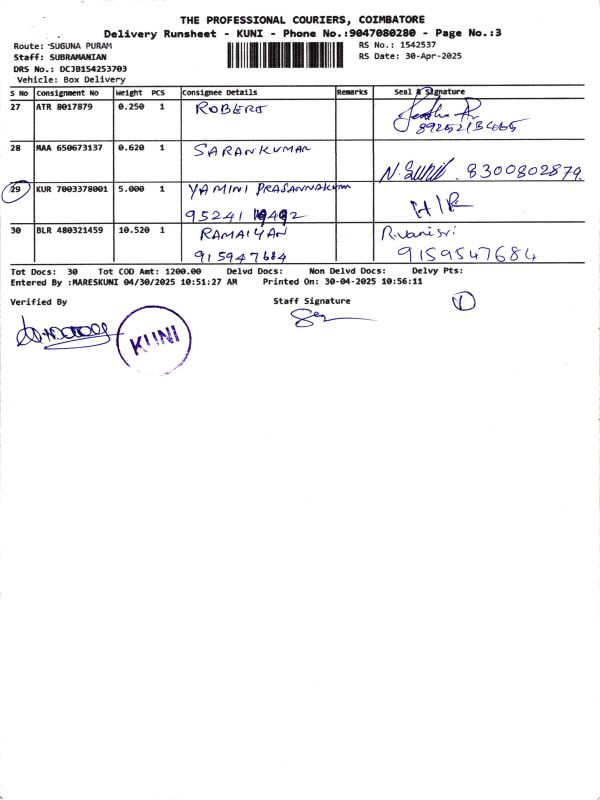 THE PROFESSIONAL COURIERS, COIMBATORE
Delivery Runsheet - KUNI - Phone No.:9047080280 - Page No.:3
Route: SUGUNA PURAM
RS No.: 1542537
Staff: SUBRAMANIAN
RS Date: 30-Apr-2025
DRS No.: DCJB154253703
Vehicle: Box Delivery
S No Consignment No Weight PCS Consignee Details Remarks Seal & Signature
27 ATR 8017879 0.250 1 ROBERT
28 MAA 650673137 0.620 1 SARANKUMAR
8300802879
29 KUR 7003378001 5.000 1 YAMINI PRASANNAKUMAR
95241
H/R
30 BLR 480321459 10.520 1 RAMAIYAN R.Vanisri
915947684 9159547684
Tot Docs: 30 Tot COD Amt: 1200.00 Delvd Docs: Non Delvd Docs: Delvy Pts:
Entered By :MARESKUNI 04/30/2025 10:51:27 AM Printed On: 30-04-2025 10:56:11
Verified By Staff Signature
1
KUNI